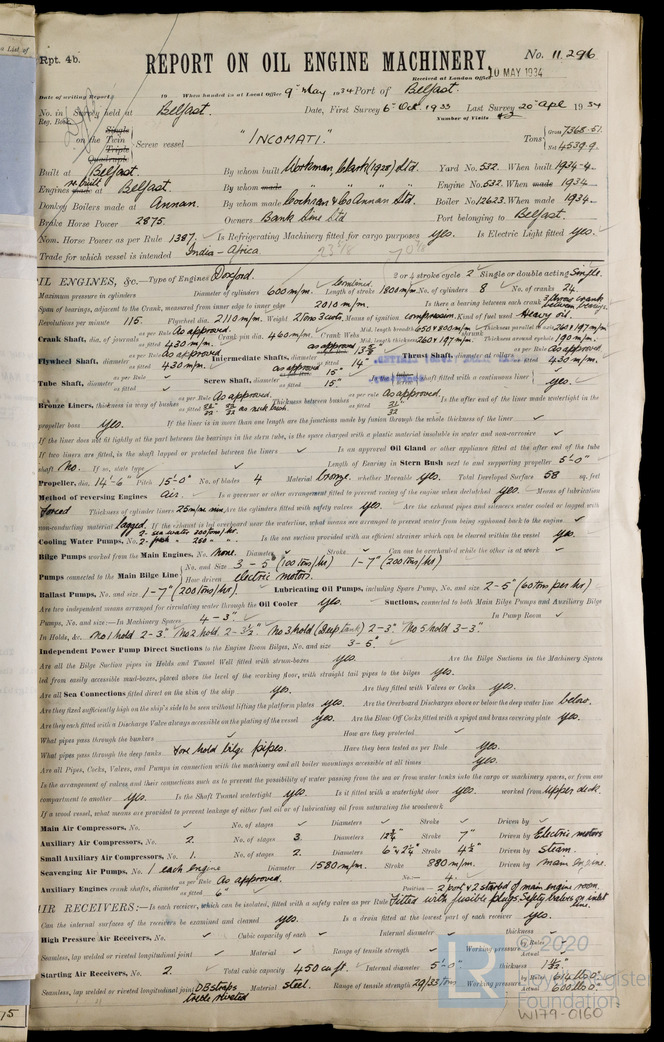 s List of
Rpt. 4b.
REPORT ON OIL ENGINE MACHINERY.
No. 11.296
Received at London Office 10 MAY 1934
Date of writing Report 19 When handed in at Local Office 9th May 1934 Port of Belfast.
No. in Survey held at Belfast. Date, First Survey 6th Oct. 1933 Last Survey 20th Apl 1934
Reg. Book. Number of Visits
Single
on the Twin Screw vessel "INCOMATI." Tons Gross 7368.51.
Triple
Quadruple
Net 4539.9.
Built at Belfast. By whom built Workman, Clark (1928) Ltd. Yard No. 532. When built 1934-4.
Engines made at Belfast. By whom made " " " " Engine No. 532. When made 1934
re built
Donkey Boilers made at Annan. By whom made Cochran & Co Annan Ltd. Boiler No. 12623. When made 1934.
Brake Horse Power 2875. Owners Bank Line Ltd Port belonging to Belfast.
Nom. Horse Power as per Rule 1387. Is Refrigerating Machinery fitted for cargo purposes yes. Is Electric Light fitted yes.
Trade for which vessel is intended India - Africa.
OIL ENGINES, &c.—Type of Engines Doxford. 2 or 4 stroke cycle 2 Single or double acting Single.
Maximum pressure in cylinders Diameter of cylinders 600 m/m. Length of stroke Combined 1800 m/m. No. of cylinders 8 No. of cranks 24.
Span of bearings, adjacent to the Crank, measured from inner edge to inner edge 2010 m/m. Is there a bearing between each crank
Revolutions per minute 115. Flywheel dia. 2110 m/m. Weight Means of ignition compression Kind of fuel used Heavy oil.
Crank Shaft, dia. of journals as per Rule As approved. as fitted 430 m/m. Crank pin dia. 460 m/m. Crank Webs Mid. length breadth 650 x 800 m/m Thickness parallel to axis 260 & 197 m/m
Mid. length thickness 260 & 197 m/m. shrunk Thickness around eyehole 190 m/m.
Flywheel Shaft, diameter as per Rule As approved. as fitted 430 m/m. Intermediate Shafts, diameter as per Rule as approved as fitted 14" Thrust Shaft, diameter at collars as per Rule As approved as fitted 430 m/m.
Tube Shaft, diameter as per Rule as fitted Screw Shaft, diameter as per Rule as approved as fitted 15" Is the shaft fitted with a continuous liner yes.
Bronze Liners, thickness in way of bushes as per Rule As approved. Thickness between bushes as per rule As approved. Is the after end of the liner made watertight in the
propeller boss yes. If the liner is in more than one length are the junctions made by fusion through the whole thickness of the liner
If the liner does not fit tightly at the part between the bearings in the stern tube, is the space charged with a plastic material insoluble in water and non-corrosive
If two liners are fitted, is the shaft lapped or protected between the liners Is an approved Oil Gland or other appliance fitted at the after end of the tube
shaft No. If so, state type Length of Bearing in Stern Bush next to and supporting propeller 5'-0"
Propeller, dia. 14'-6" Pitch 15'-0" No. of blades 4 Material bronze. whether Moveable yes. Total Developed Surface 58 sq. feet
Method of reversing Engines Air. Is a governor or other arrangement fitted to prevent racing of the engine when declutched yes. Means of lubrication
forced Thickness of cylinder liners 25 m/m min. Are the cylinders fitted with safety valves yes. Are the exhaust pipes and silencers water cooled or lagged with
non-conducting material lagged. If the exhaust is led overboard near the waterline, what means are arranged to prevent water being syphoned back to the engine
Cooling Water Pumps, No. 2 - sea water 200 tons/hr. 2 - fresh " 250 " " Is the sea suction provided with an efficient strainer which can be cleared within the vessel yes.
Bilge Pumps worked from the Main Engines, No. None. Diameter Stroke Can one be overhauled while the other is at work
Pumps connected to the Main Bilge Line No. and Size 3 - 5" (100 tons/hr) 1-7" (200 tons/hr)
How driven electric motors.
Ballast Pumps, No. and size 1-7" (200 tons/hr.) Lubricating Oil Pumps, including Spare Pump, No. and size 2-5" (60 tons per hr)
Are two independent means arranged for circulating water through the Oil Cooler yes. Suctions, connected to both Main Bilge Pumps and Auxiliary Bilge
Pumps, No. and size:—In Machinery Spaces 4-3". In Pump Room
In Holds, &c. No 1 hold 2-3". No 2 hold 2-3½". No 3 hold (Deep tank) 2-3". No 5 hold 3-3".
Independent Power Pump Direct Suctions to the Engine Room Bilges, No. and size 3-5".
Are all the Bilge Suction pipes in Holds and Tunnel Well fitted with strum-boxes yes. Are the Bilge Suctions in the Machinery Spaces
led from easily accessible mud-boxes, placed above the level of the working floor, with straight tail pipes to the bilges yes.
Are all Sea Connections fitted direct on the skin of the ship yes. Are they fitted with Valves or Cocks yes.
Are they fixed sufficiently high on the ship's side to be seen without lifting the platform plates yes. Are the Overboard Discharges above or below the deep water line below.
Are they each fitted with a Discharge Valve always accessible on the plating of the vessel yes. Are the Blow Off Cocks fitted with a spigot and brass covering plate yes.
What pipes pass through the bunkers How are they protected
What pipes pass through the deep tanks Fore hold bilge pipes. Have they been tested as per Rule yes.
Are all Pipes, Cocks, Valves, and Pumps in connection with the machinery and all boiler mountings accessible at all times yes.
Is the arrangement of valves and their connections such as to prevent the possibility of water passing from the sea or from water tanks into the cargo or machinery spaces, or from one
compartment to another yes. Is the Shaft Tunnel watertight yes. Is it fitted with a watertight door yes. worked from upper deck.
If a wood vessel, what means are provided to prevent leakage of either fuel oil or of lubricating oil from saturating the woodwork
Main Air Compressors, No. No. of stages Diameters Stroke Driven by
Auxiliary Air Compressors, No. 2. No. of stages 3. Diameters 12¾" Stroke 7" Driven by Electric motors
Small Auxiliary Air Compressors, No. 1. No. of stages 2. Diameters Stroke 4½" Driven by Steam.
Scavenging Air Pumps, No. 1 each engine Diameter 1580 m/m. Stroke 880 m/m. Driven by main engine.
Auxiliary Engines crank shafts, diameter as per Rule As approved. as fitted 6" No. 4. Position 2 port & 2 starbd of main engine room.
AIR RECEIVERS:—Is each receiver, which can be isolated, fitted with a safety valve as per Rule Fitted with fusible plugs. Safety valves on inlet line.
Can the internal surfaces of the receivers be examined and cleaned yes. Is a drain fitted at the lowest part of each receiver yes.
High Pressure Air Receivers, No. Cubic capacity of each Internal diameter thickness
Seamless, lap welded or riveted longitudinal joint Material Range of tensile strength Working pressure by Rules Actual
Starting Air Receivers, No. 2. Total cubic capacity 450 cu ft. Internal diameter 5'-0" thickness
Seamless, lap welded or riveted longitudinal joint DB Straps treble riveted Material Steel. Range of tensile strength 29/33 tons Working pressure by Rules 614 lbs □" Actual 600 lbs □"
LR
© 2020
Lloyd's Register
Foundation
W179-0160